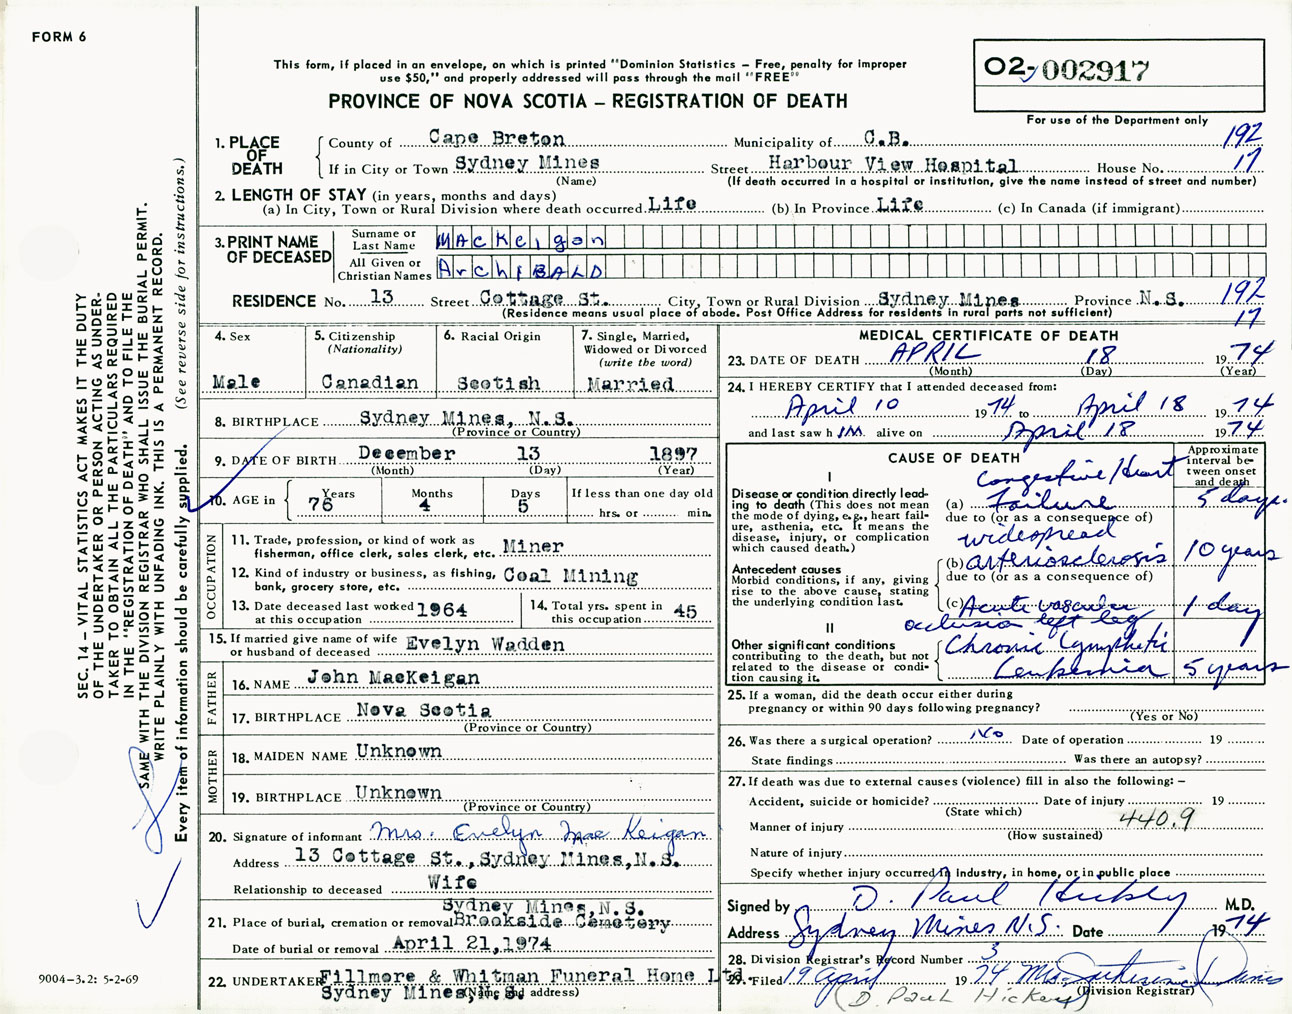 FORM 6
This form, if placed in an envelope, on which is printed "Dominion Statistics – Free, penalty for improper
use $50," and properly addressed will pass through the mail "FREE"
PROVINCE OF NOVA SCOTIA – REGISTRATION OF DEATH
02-002917
For use of the Department only
192
17
1. PLACE OF DEATH
County of Cape Breton Municipality of C.B.
If in City or Town Sydney Mines Street Harbour View Hospital House No.
(Name) (If death occurred in a hospital or institution, give the name instead of street and number)
2. LENGTH OF STAY (in years, months and days)
(a) In City, Town or Rural Division where death occurred Life (b) In Province Life (c) In Canada (if immigrant)
3. PRINT NAME OF DECEASED
Surname or Last Name MAcKeigan
All Given or Christian Names ArchIBALD
RESIDENCE No. 13 Street Cottage St. City, Town or Rural Division Sydney Mines Province N.S. 192
(Residence means usual place of abode. Post Office Address for residents in rural parts not sufficient) 17
4. Sex
Male
5. Citizenship
(Nationality)
Canadian
6. Racial Origin
Scotish
7. Single, Married,
Widowed or Divorced
(write the word)
Married
8. BIRTHPLACE Sydney Mines, N.S.
(Province or Country)
9. DATE OF BIRTH December 13 1897
(Month) (Day) (Year)
10. AGE in
Years 76 Months 4 Days 5
If less than one day old
hrs. or min.
OCCUPATION
11. Trade, profession, or kind of work as
fisherman, office clerk, sales clerk, etc. Miner
12. Kind of industry or business, as fishing,
bank, grocery store, etc. Coal Mining
13. Date deceased last worked
at this occupation 1964
14. Total yrs. spent in
this occupation 45
15. If married give name of wife
or husband of deceased Evelyn Wadden
FATHER
16. NAME John MacKeigan
17. BIRTHPLACE Nova Scotia
(Province or Country)
MOTHER
18. MAIDEN NAME Unknown
19. BIRTHPLACE Unknown
(Province or Country)
20. Signature of informant Mrs. Evelyn MacKeigan
Address 13 Cottage St., Sydney Mines, N.S.
Relationship to deceased Wife
Sydney Mines, N.S.
21. Place of burial, cremation or removal Brookside Cemetery
Date of burial or removal April 21, 1974
22. UNDERTAKER Fillmore & Whitman Funeral Home Ltd.
Sydney Mines, N.S.
(Name and address)
MEDICAL CERTIFICATE OF DEATH
23. DATE OF DEATH APRIL 18 1974
(Month) (Day) (Year)
24. I HEREBY CERTIFY that I attended deceased from:
April 10 1974 to April 18 1974
and last saw h im alive on April 18 1974
CAUSE OF DEATH
Approximate
interval be-
tween onset
and death
I
Disease or condition directly lead-
ing to death (This does not mean
the mode of dying, e.g., heart fail-
ure, asthenia, etc. It means the
disease, injury, or complication
which caused death.)
Congestive Heart
(a) Failure 5 days.
due to (or as a consequence of)
widespread
(b) arteriosclerosis 10 years
due to (or as a consequence of)
Antecedent causes
Morbid conditions, if any, giving
rise to the above cause, stating
the underlying condition last.
(c) Acute vascular 1 day
occlusion left leg
II
Other significant conditions
contributing to the death, but not
related to the disease or condi-
tion causing it.
Chronic Lymphatic
Leukemia 5 years
25. If a woman, did the death occur either during
pregnancy or within 90 days following pregnancy?
(Yes or No)
26. Was there a surgical operation? No Date of operation 19
State findings Was there an autopsy?
27. If death was due to external causes (violence) fill in also the following: –
Accident, suicide or homicide? Date of injury 19
(State which)
Manner of injury 440.9
(How sustained)
Nature of injury
Specify whether injury occurred in Industry, in home, or in public place
Signed by D. Paul Hickey M.D.
Address Sydney Mines N.S. Date 1974
28. Division Registrar's Record Number 3
29. Filed 19 April 1974 Mrs.
(Division Registrar)
(D. PAUL Hickey)
SEC. 14 – VITAL STATISTICS ACT MAKES IT THE DUTY
OF THE UNDERTAKER OR PERSON ACTING AS UNDER-
TAKER TO OBTAIN ALL THE PARTICULARS REQUIRED
IN THE "REGISTRATION OF DEATH" AND TO FILE THE
SAME WITH THE DIVISION REGISTRAR WHO SHALL ISSUE THE BURIAL PERMIT.
WRITE PLAINLY WITH UNFADING INK. THIS IS A PERMANENT RECORD.
Every item of information should be carefully supplied. (See reverse side for instructions.)
9004-3.2: 5-2-69